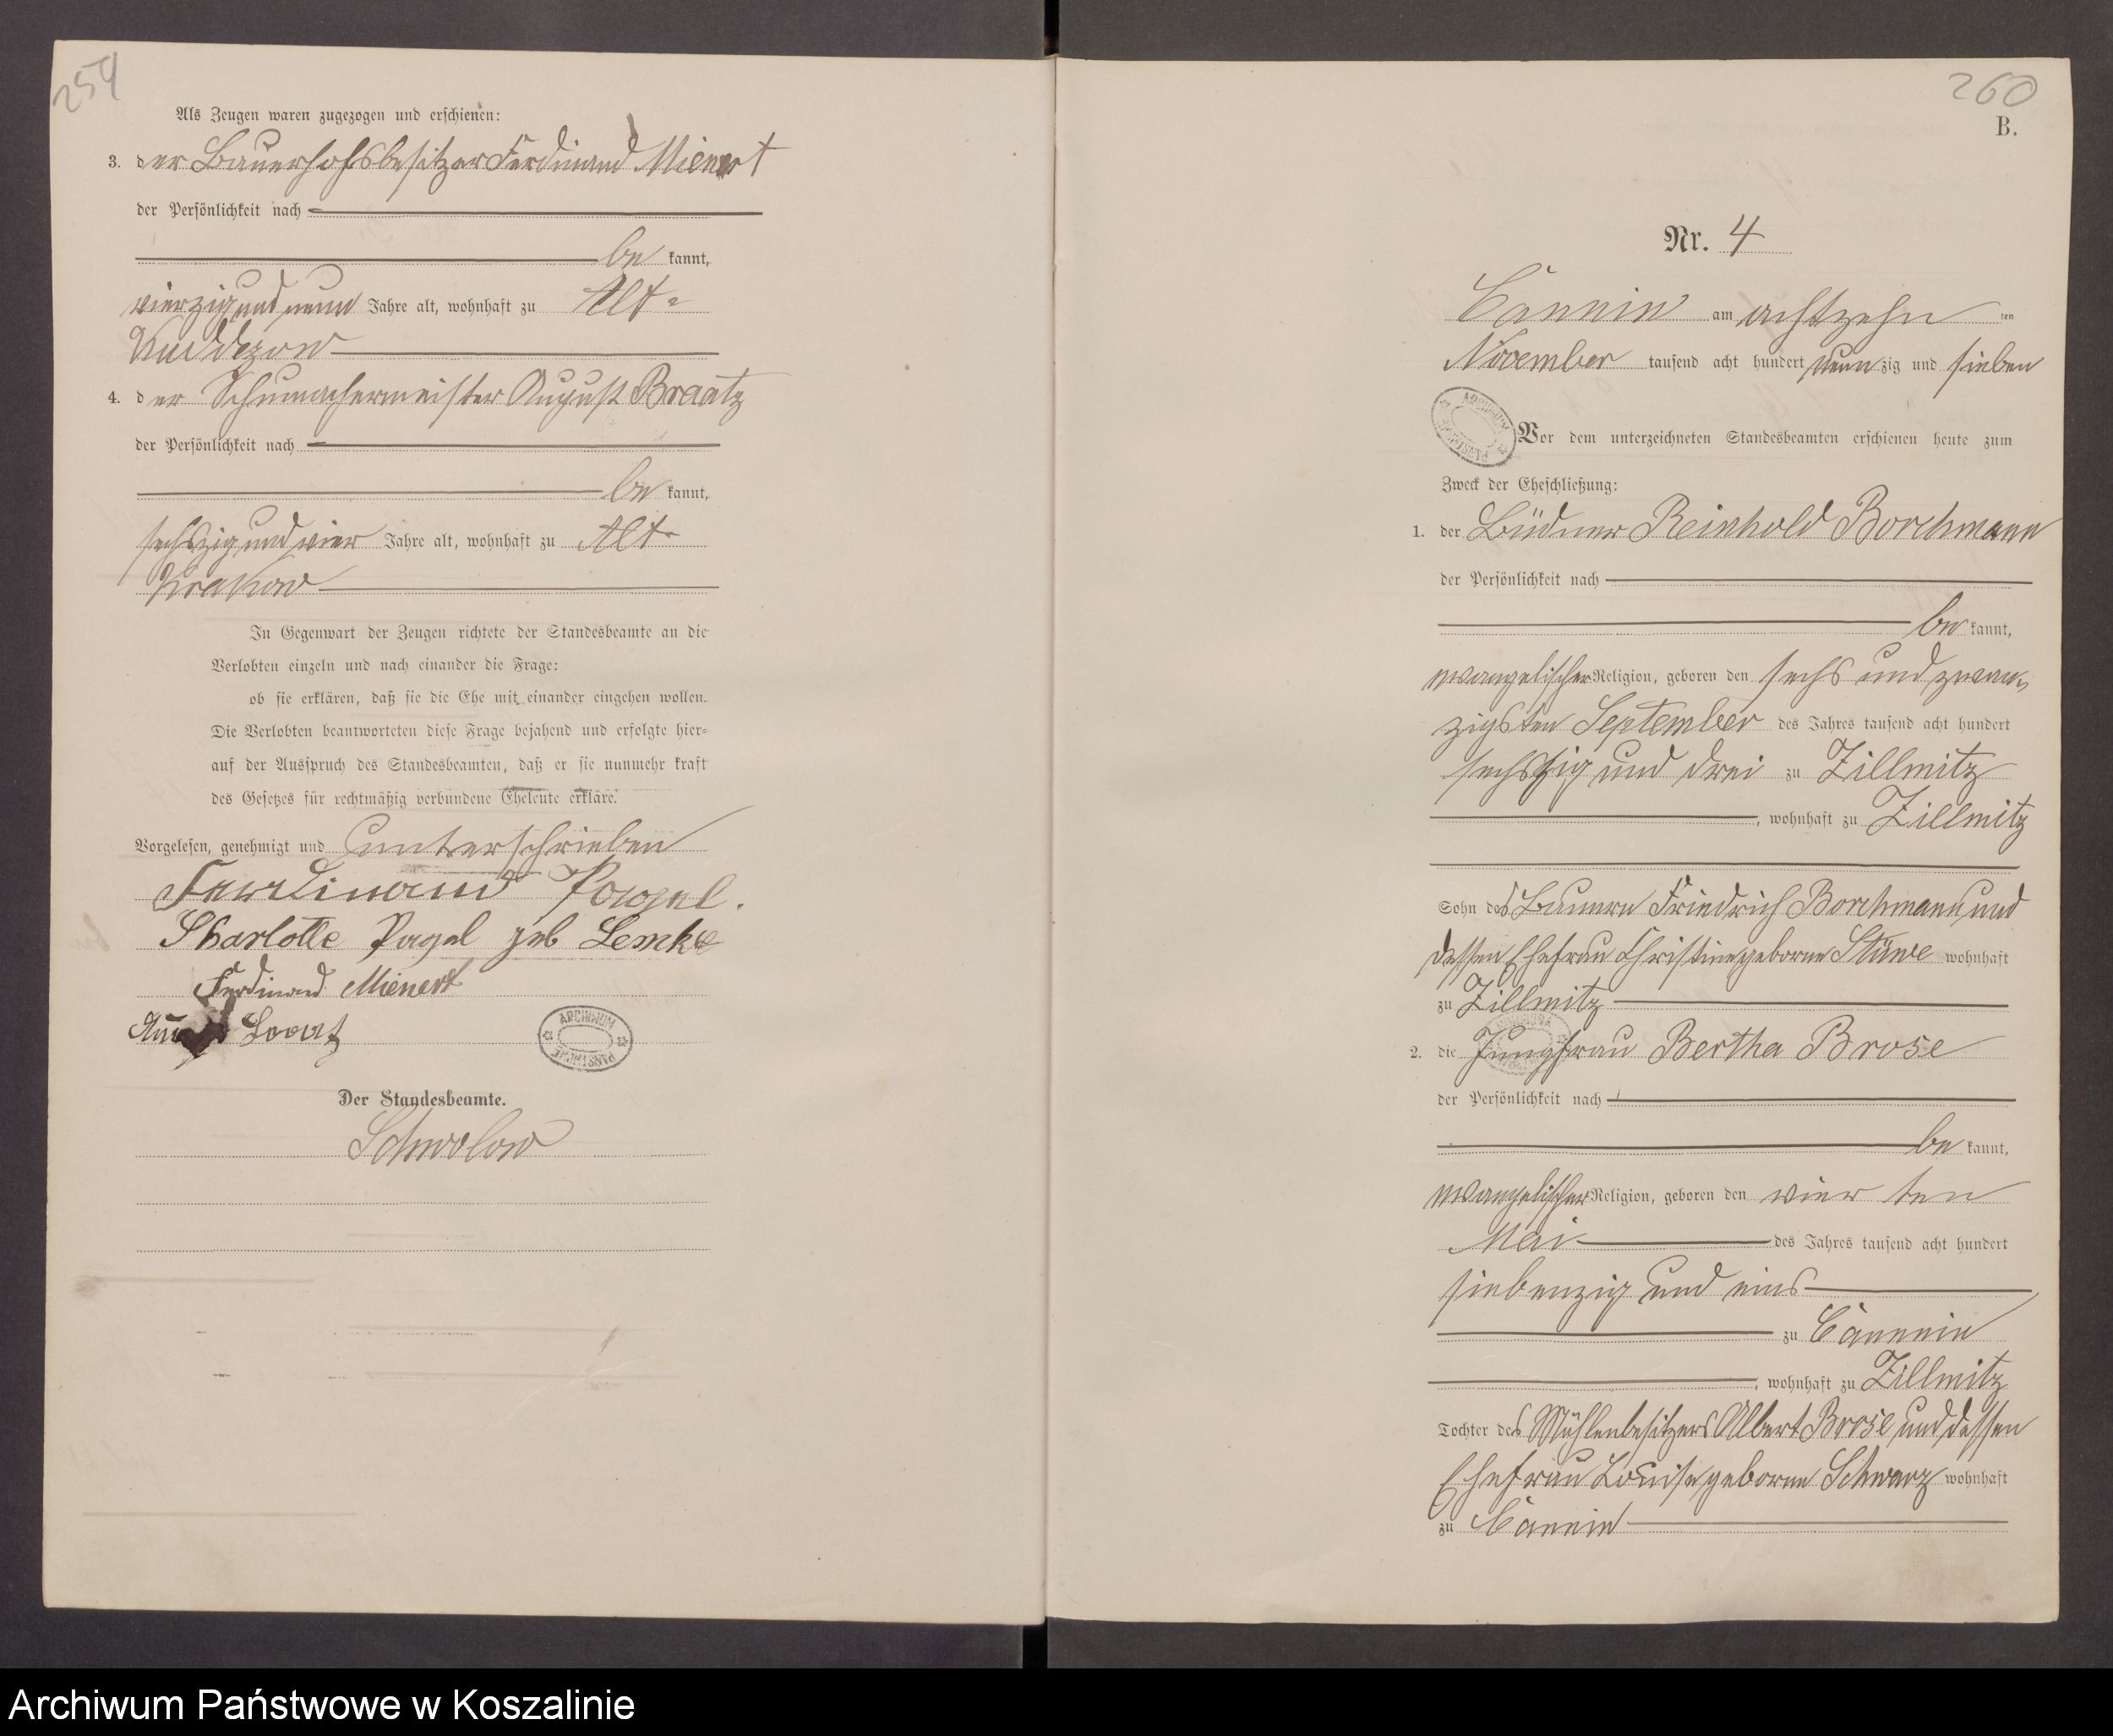 254
Als Zeugen waren zugezogen und erschienen:
3. der Bauerhofsbesitzer Ferdinand Mienert
der Persönlichkeit nach
be kannt,
vierzig und neun Jahre alt, wohnhaft zu Alt-
Kuddezow
4. der Schumachermeister August Braatz
der Persönlichkeit nach
be kannt,
sechszig und vier Jahre alt, wohnhaft zu Alt-
Krakow
In Gegenwart der Zeugen richtete der Standesbeamte an die
Verlobten einzeln und nach einander die Frage:
ob sie erklären, daß sie die Ehe mit einander eingehen wollen.
Die Verlobten beantworteten diese Frage bejahend und erfolgte hier-
auf der Ausspruch des Standesbeamten, daß er sie nunmehr kraft
des Gesetzes für rechtmäßig verbundene Eheleute erkläre.
Vorgelesen, genehmigt und unterschrieben
Ferdinand Pagel.
Charlotte Pagel geb Lemke
Ferdinand Mienert
ARCHIWUM PAŃSTWOWE
Der Standesbeamte.
Schwolow
260
B.
Nr. 4
Cannin am achtzehn ten
November tausend acht hundert neun zig und sieben
ARCHIWUM PAŃSTWOWE
Vor dem unterzeichneten Standesbeamten erschienen heute zum
Zweck der Eheschließung:
1. der Büdner Reinhold Borchmann
der Persönlichkeit nach
be kannt,
evangelischer Religion, geboren den sechs und zwan-
zigsten September des Jahres tausend acht hundert
sechszig und drei zu Zillmitz
, wohnhaft zu Zillmitz
Sohn des Bauern Friedrich Borchmann und
dessen Ehefrau Christine geborne Stüwe wohnhaft
zu Zillmitz
2. die Jungfrau Bertha Brose
der Persönlichkeit nach
be kannt,
evangelischer Religion, geboren den vier ten
Mai des Jahres tausend acht hundert
siebenzig und eins
zu Cannin
, wohnhaft zu Zillmitz
Tochter des Mühlenbesitzers Albert Brose und dessen
Ehefrau Louise geborne Schwarz wohnhaft
zu Cannin
Archiwum Państwowe w Koszalinie